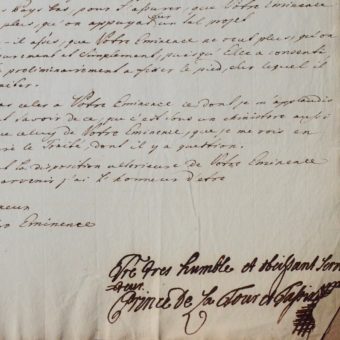 Pays bas, pour l'assurer, que Votre Eminence
plus, qu'on appuyat un tel projet
il assés, que Votre Eminence ne veut plus qu'on
purement et simplement, puisqu'Elle a consenti
preliminairement a fixer le pied, sur lequel il
traiter.
pas celer a Votre Eminence ce dont je m'applaudis
savoir de ce, que c'est sous un ministere aussi
que celuy de Votre Eminence, que je me vois en
le Traité dont il y a question.
la disposition ulterieure de Votre Eminence
parvenir j'ai l'honneur d'etre
Eminence
Tres humble et obeissant Serv
teur
Prince De La Tour et Tassis